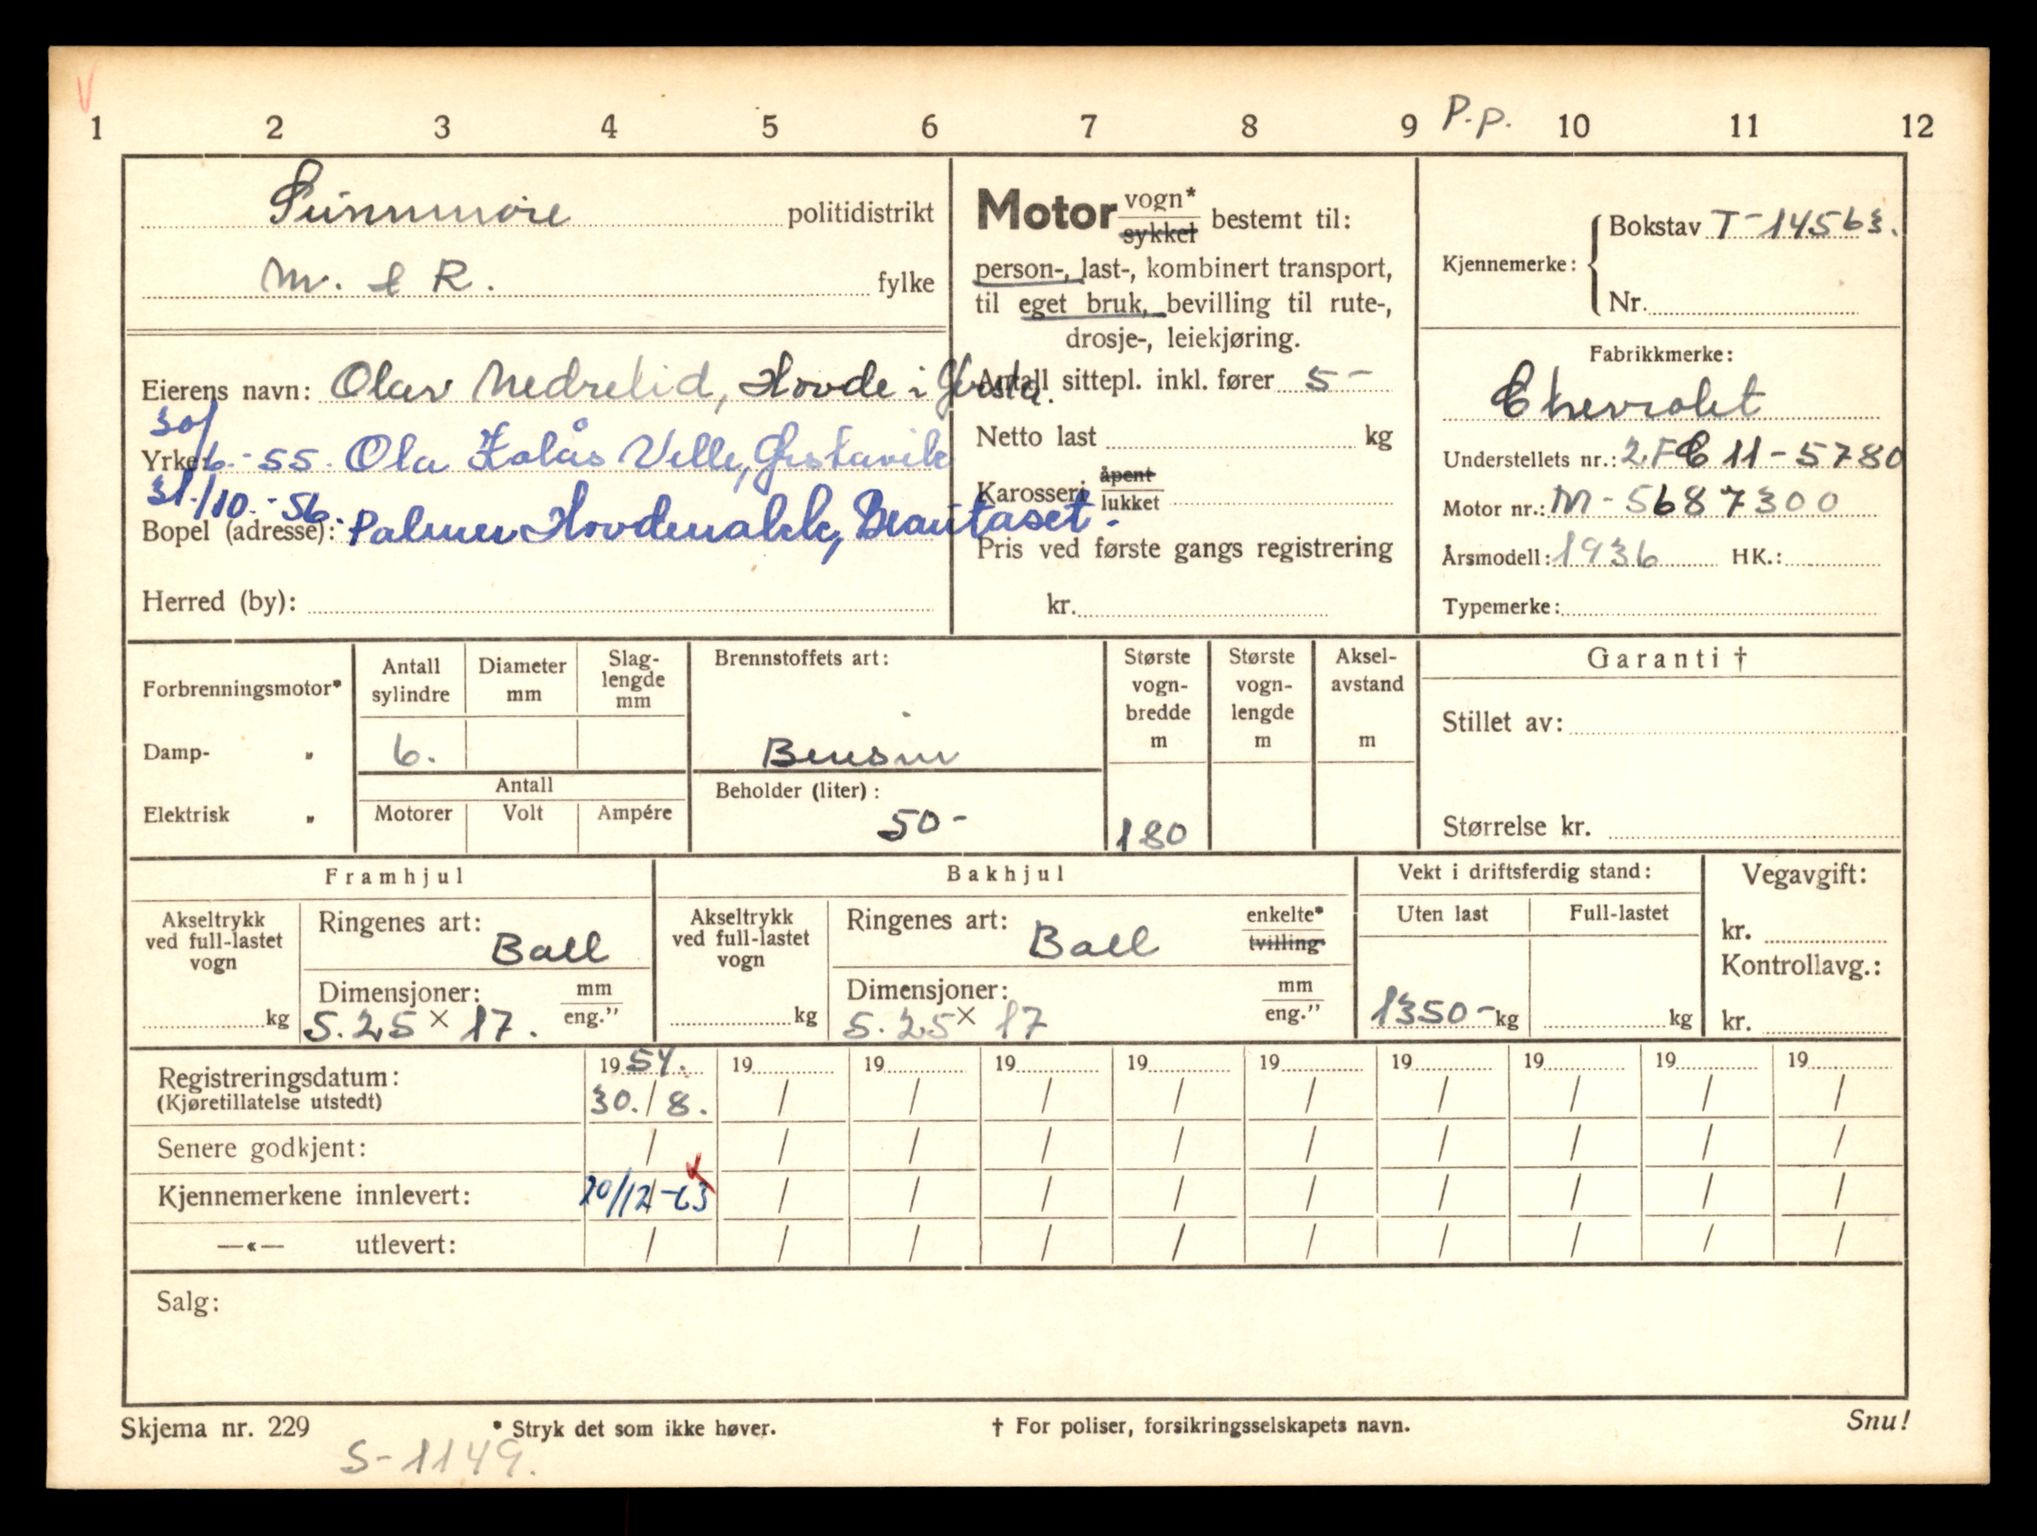 1 2 3 4 5 6 7 8 9 P.p. 10 11 12
Sunnmøre politidistrikt
M. & R. fylke
Eierens navn: Olav Nedrelid, Hovde i Ørsta.
30/6.-55. Ola Kolås Velle, Ørstavik
Yrke:
31./10.-56. Palmer Hovdenakk, Brautaset.
Bopel (adresse):
Herred (by):
Motor vogn* sykkel bestemt til:
person-, last-, kombinert transport,
til eget bruk, bevilling til rute-,
drosje-, leiekjøring.
Antall sittepl. inkl. fører 5-
Netto last kg
Karosseri åpent lukket
Pris ved første gangs registrering
kr.
Kjennemerke: Bokstav T-14563.
Nr.
Fabrikkmerke:
Chevrolet
Understellets nr.: 2FC11-5780
Motor nr.: M-5687300
Årsmodell: 1936 HK.:
Typemerke:
Forbrenningsmotor*
Damp- „
Elektrisk „
Antall sylindre
Diameter mm
Slag-
lengde
mm
6.
Antall
Motorer Volt Ampére
Brennstoffets art:
Bensin
Beholder (liter):
50-
Største
vogn-
bredde
m
180
Største
vogn-
lengde
m
Aksel-
avstand
m
Garanti †
Stillet av:
Størrelse kr.
Framhjul
Akseltrykk
ved full-lastet
vogn
kg
Ringenes art:
Ball
Dimensjoner: mm
5.25 × 17. eng."
Bakhjul
Akseltrykk
ved full-lastet
vogn
kg
Ringenes art: enkelte*
Ball tvilling*
Dimensjoner: mm
5.25 × 17 eng."
Vekt i driftsferdig stand:
Uten last Full-lastet
1350- kg kg
Vegavgift:
kr.
Kontrollavg.:
kr.
Registreringsdatum: 1954. 19 19 19 19 19 19 19 19 19
(Kjøretillatelse utstedt) 30./8. / / / / / / / / /
Senere godkjent: / / / / / / / / / /
Kjennemerkene innlevert: 20/12-63 / / / / / / / / /
—«— utlevert: / / / / / / / / / /
Salg:
Skjema nr. 229 * Stryk det som ikke høver. † For poliser, forsikringsselskapets navn. Snu!
S-1149.